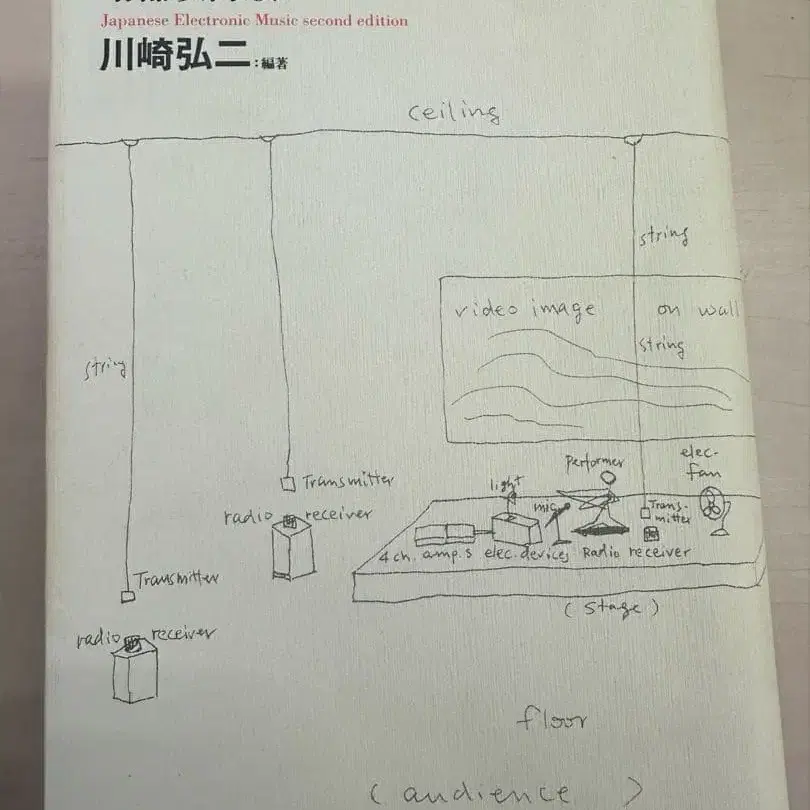 Japanese Electronic Music second edition
川崎弘二:編著
ceiling
string
video image on wall
string
string
elec-
fan
Performer
light
Transmitter
mic
Trans-
mitter
radio receiver
4ch. amp.s elec. devices Radio receiver
Transmitter
(stage)
radio receiver
floor
(audience)